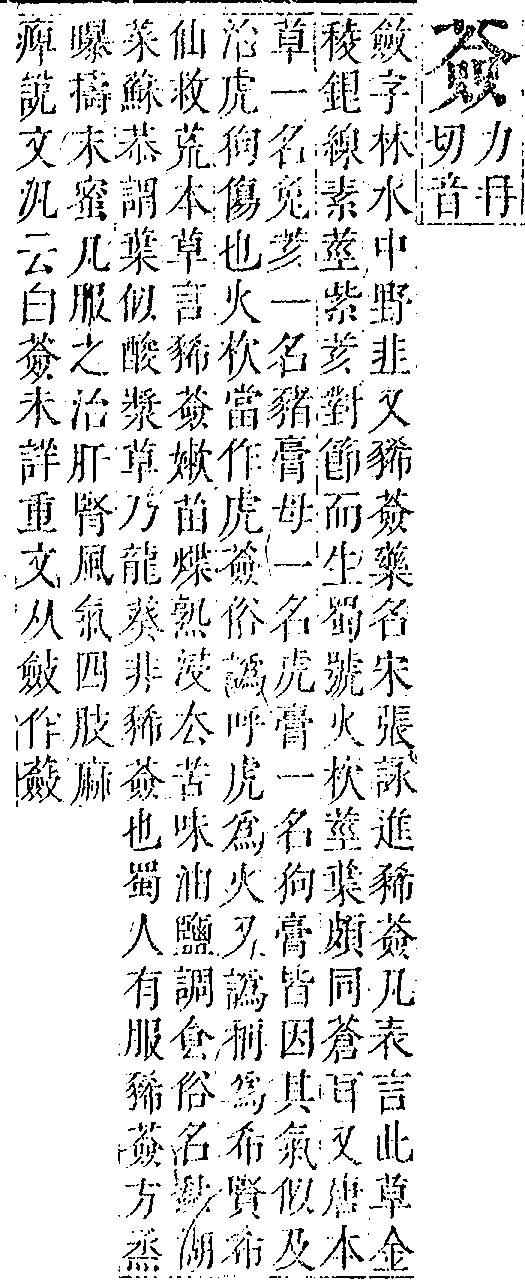 薟
力冉
切音
斂字林水中野韭又豨薟藥名宋張詠進豨薟凡表言此草金
稜銀線素莖紫荄對節而生蜀號火杴莖葉頗同蒼耳又唐本
草一名羗荄一名豬膏母一名虎膏一名狗膏皆因其氣似及
治虎狗傷也火杴當作虎薟俗譌呼虎為火又譌豨為希賢希
仙救荒本草言豨薟嫩苗煠熟浸去苦味油鹽調食俗名黏湖
菜蘇恭謂葉似酸漿草乃龍葵非豨薟也蜀人有服豨薟方烝
曝擣末蜜凡服之治肝腎風氣四肢麻
痺說文汎云白薟未詳重文从斂作蘞